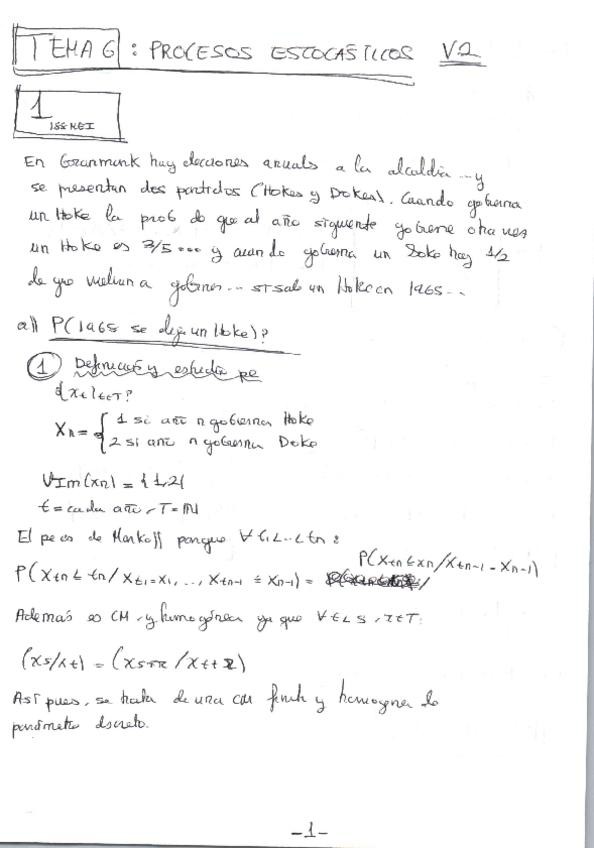 TEMA 6 : PROCESOS ESTOCÁSTICOS V2
1
En Granmunk hay elecciones anuales a la alcaldía ... y
se presentan dos partidos (Hokes y Dokes). Cuando gobierna
un Hoke la prob de que al año siguiente gobierne otra vez
un Hoke es 3/5 ... y cuando gobierna un Doke hay 1/2
de que vuelvan a gobernar ... si sale un Hoke en 1965 ..
a)) P(1965 se elija un Hoke)?
1 Definición y estudio pe
{Xt}t∈T?
Xn = { 1 si año n gobierna Hoke
2 si año n gobierna Doke
Im(xn) = {1,2}
t = cada año, T = ℕ
El pe es de Markoff porque ∀ t1<..<tn :
P(Xtn ≤ tn / Xt1=x1, .., Xtn-1 = Xn-1) = P(Xtn ≤ xn / Xtn-1 = Xn-1)
Además es CM y homogénea ya que ∀ t<s, r∈T:
(Xs/Xt) = (Xs+r / Xt+r)
Así pues, se trata de una CM finita y homogénea de
parámetro discreto.
-1-